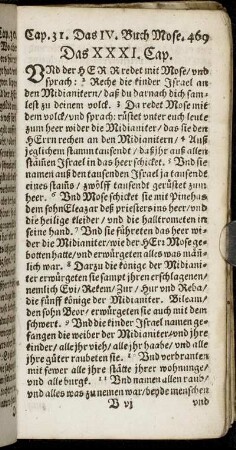 Cap. 31. Das IV. Buch Mose. 469
Das XXXI. Cap.
VNd der HERR redet mit Mose/ vnd
sprach: ² Reche die kinder Israel an
den Midianitern/ daß du darnach dich sam-
lest zu deinem volck. ³ Da redet Mose mit
dem volck/ vnd sprach: rüstet vnter euch leute
zum heer wider die Midianiter/ das sie den
HErrn rechen an den Midianitern/ ⁴ Auß
jeglichem stamm tausendt/ daß jhr auß allen
stäm̃en Israel in das heer schicket. ⁵ Vnd sie
namen auß den tausenden Israel ja tausendt
eines stam̃s/ zwölff tausendt gerüstet zum
heer. ⁶ Vnd Mose schicket sie mit Pinehas
dem sohn Eleazar deß priesters ins heer/ vnd
die heilige kleider/ vnd die halltrometen in
seine hand. ⁷ Vnd sie führeten das heer wi-
der die Midianiter/ wie der HErr Mose ge-
botten hatte/ vnd erwürgeten alles was män-
lich war. ⁸ Darzu die könige der Midiani-
ter erwürgeten sie sampt jhren erschlagenen/
nemlich Evi/ Rekem/ Zur/ Hur vnd Reba/
die fünff könige der Midianiter. Bileam/
den sohn Beor/ erwürgeten sie auch mit dem
schwert. ⁹ Vnd die kinder Israel namen ge-
fangen die weiber der Midianiter/ vnd jhre
kinder/ alle jhr vieh/ alle jhr haabe/ vnd alle
jhre güter raubeten sie. ¹⁰ Vnd verbranten
mit fewr alle jhre stätte jhrer wohnunge/
vnd alle burgk. ¹¹ Vnd namen allen raub/
vnd alles was zu nemen war/ beyde menschen
B vj vnd